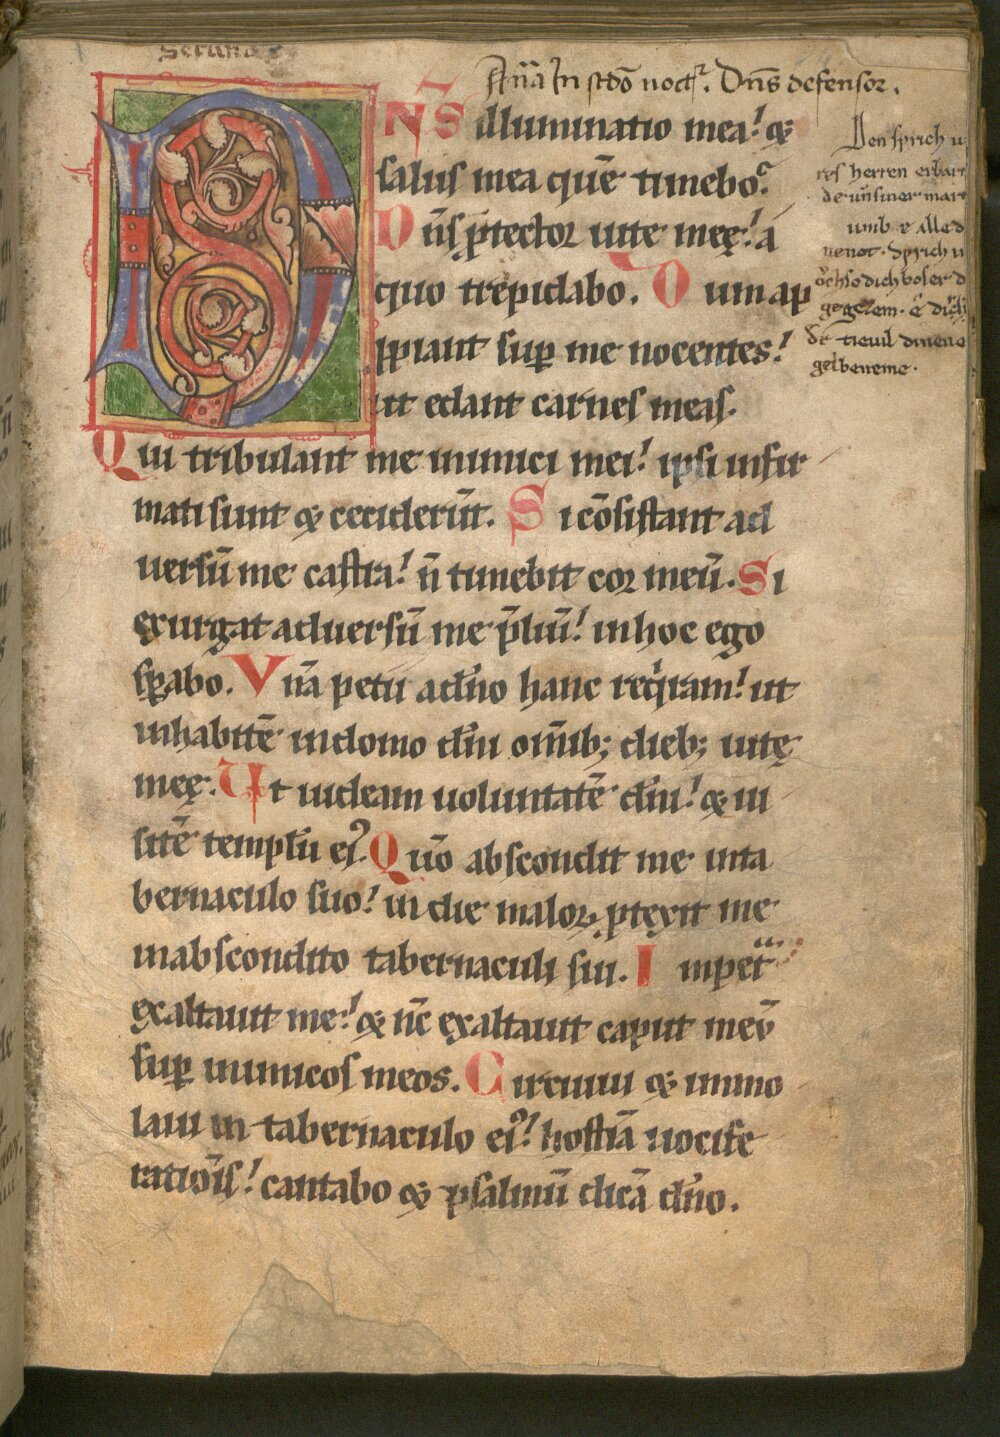 Secunda
An̄a In scd̄o noct̄. Dn̄s defensor.
DN̄S illuminatio mea! &
salus mea quē timebo?
Dn̄s ꝓtector uite meę! a
quo trepidabo. Dum ap
ꝓpiant suꝑ me nocentes!
ut edant carnes meas.
Qui tribulant me inimici mei! ipsi infir
mati sunt & ceciderūt. Si cōsistant ad
uersū me castra! n̄ timebit cor meū. Si
exurgat aduersū me p̄liū! in hoc ego
sꝑabo. Vnā petii a dn̄o hanc reqͥram! ut
inhabitē in domo dn̄i om̄ib; dieb; uitę
meę. Ut uideam uoluntatē dn̄i! & ui
sitē templū eiꝰ. Qm̄o abscondit me in ta
bernaculo suo! in die maloꝝ ꝓtexit me
in abscondito tabernaculi sui. In pet̄
exaltauit me! & nc̄ exaltauit caput meū
suꝑ inimicos meos. Circuiui & immo
laui in tabernaculo eiꝰ! hostiā uocife
ratiōis! cantabo & psalmū dicā dn̄o.
Den sprich u
res herten erbarm
de uñ siner mart
umb e alle d
nenot. Sprich u
ochso dich boser d
gegerem. e dich
der tieuil din ene
gelbeneme.